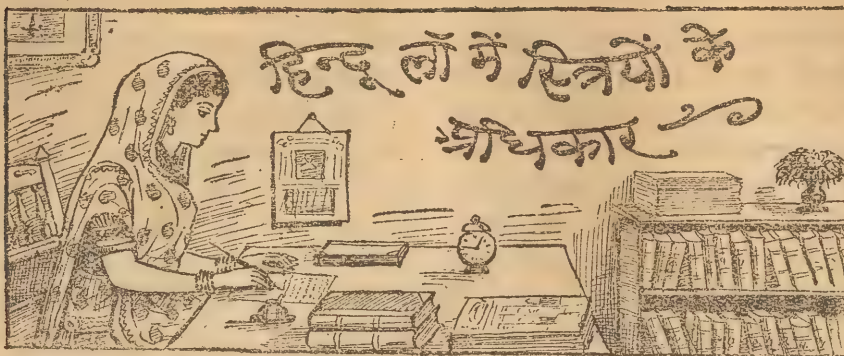 हिन्दू लॉ में स्त्रियों के
अधिकार